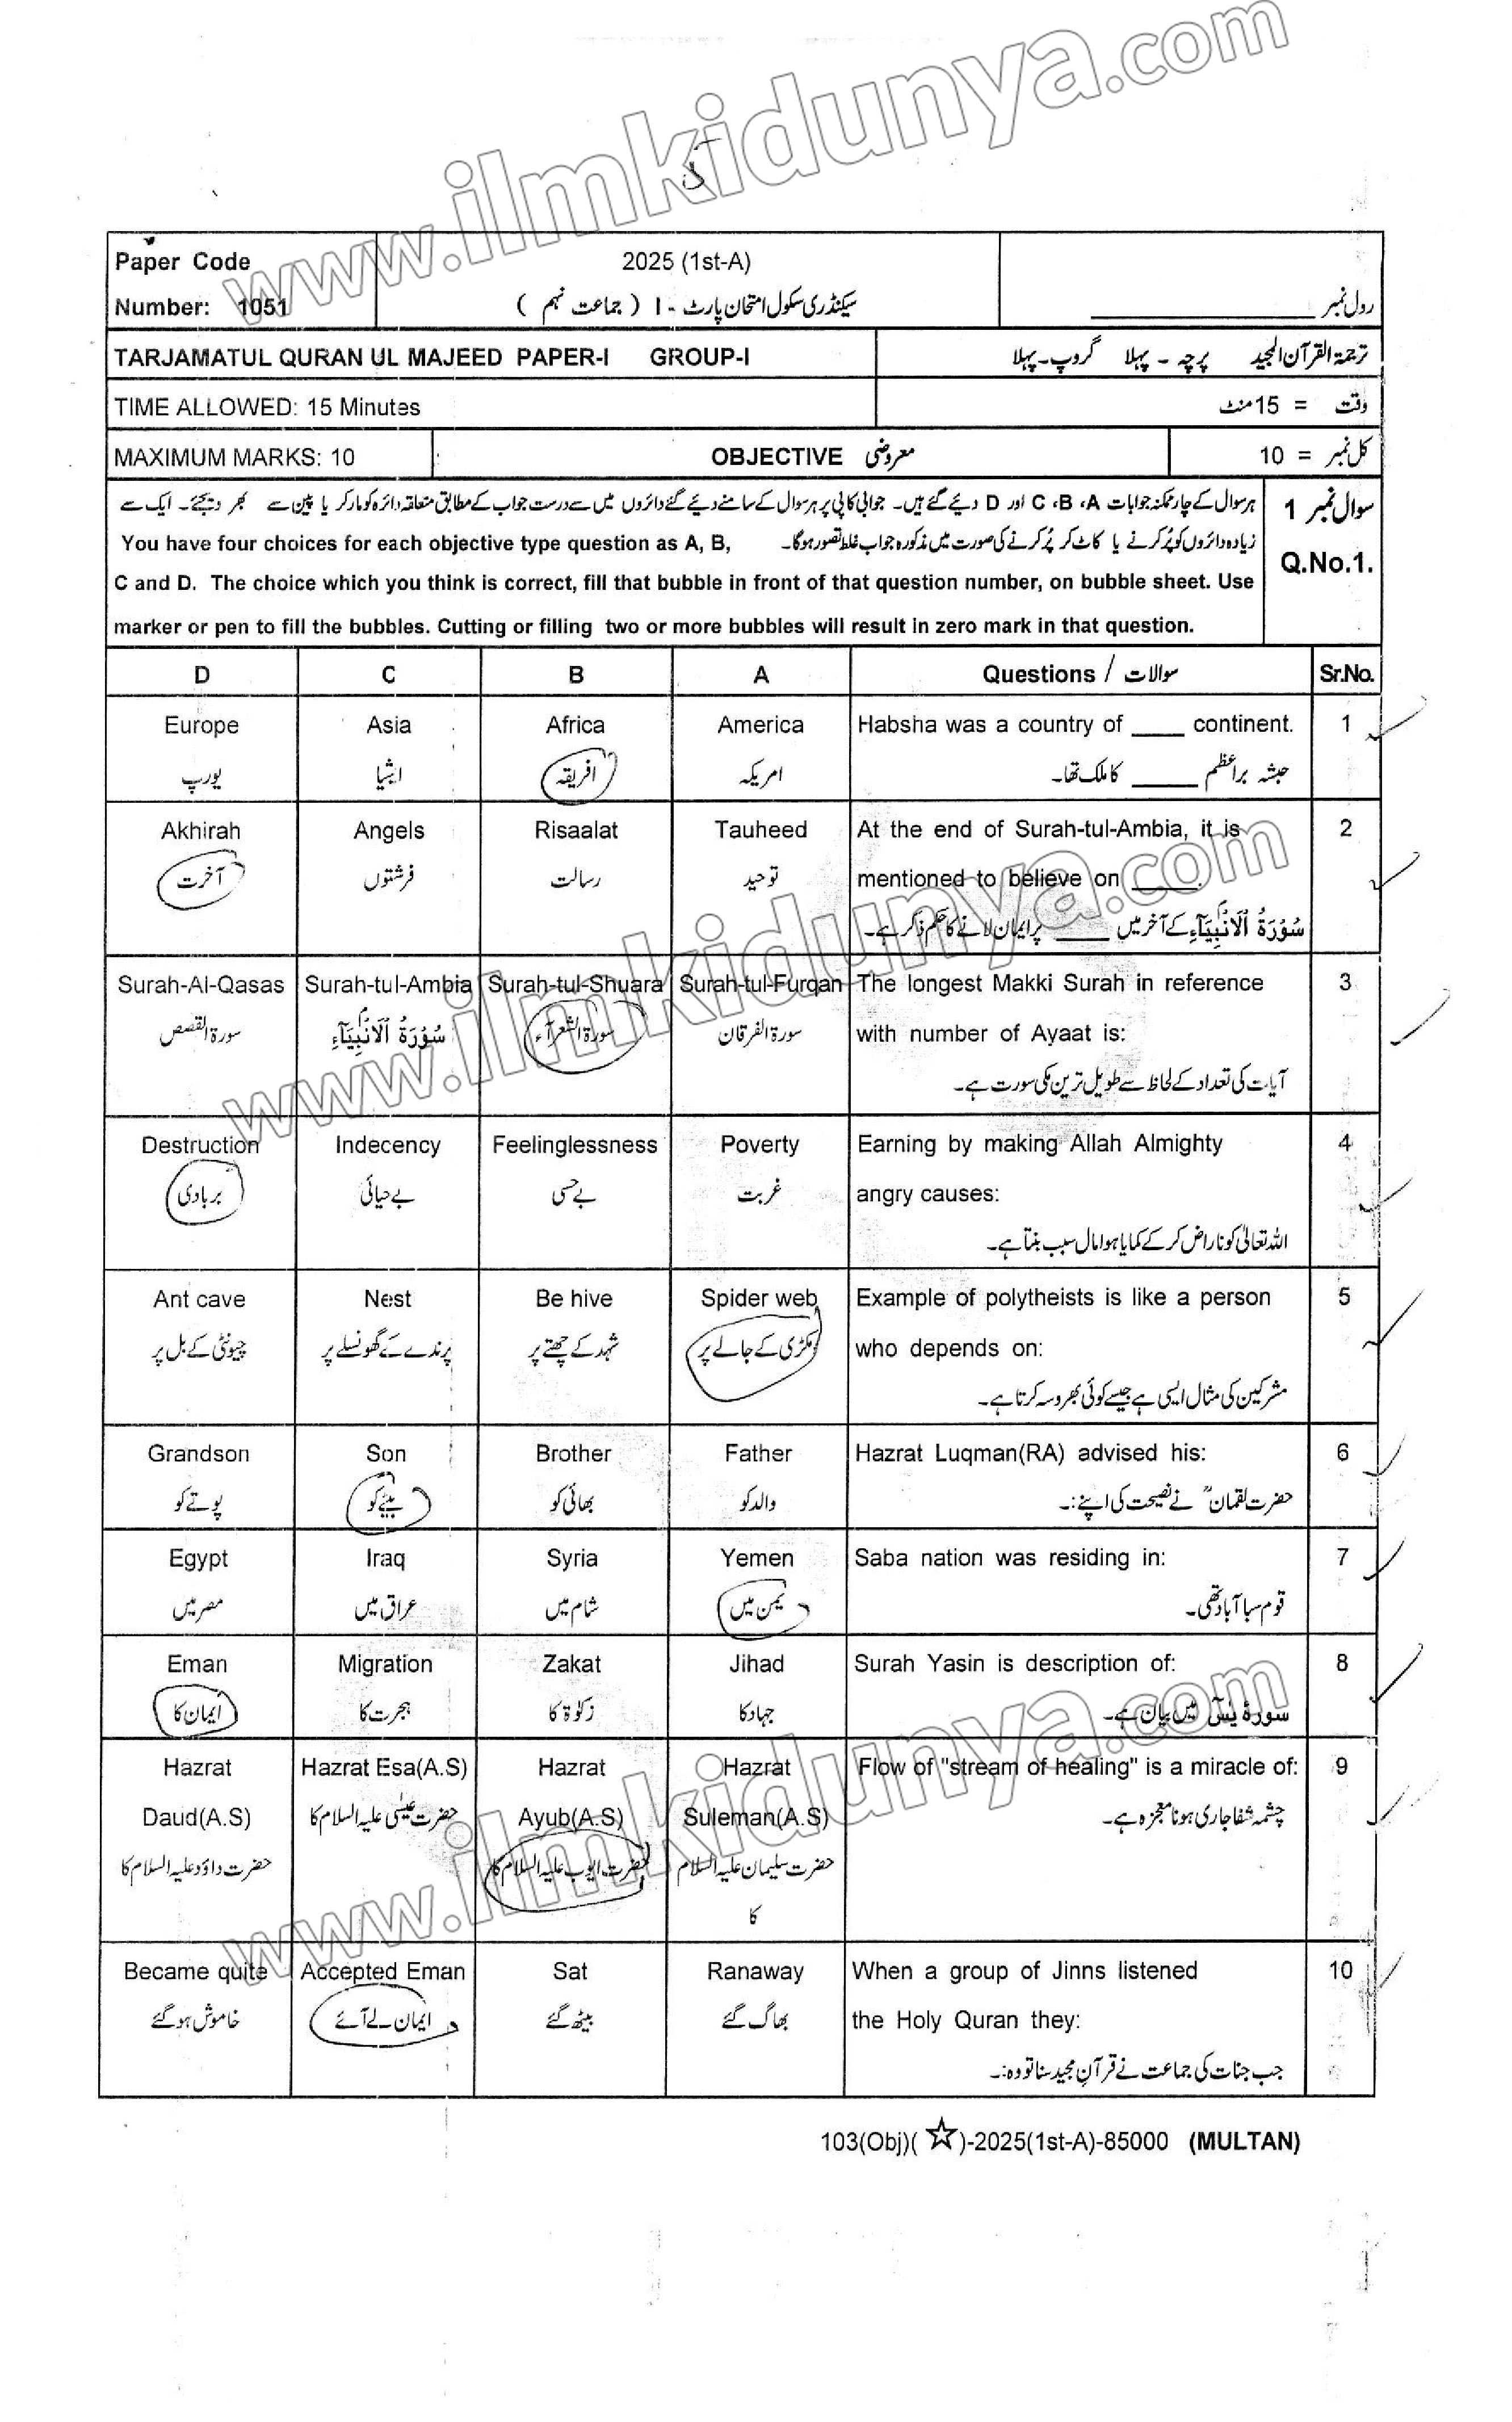 www.ilmkidunya.com
Paper Code
Number: 1051
2025 (1st-A)
سیکنڈری سکول امتحان پارٹ - I ( جماعت نہم )
رول نمبر
TARJAMATUL QURAN UL MAJEED PAPER-I GROUP-I
ترجمۃ القرآن المجید پرچہ - پہلا گروپ - پہلا
TIME ALLOWED: 15 Minutes
وقت = 15 منٹ
MAXIMUM MARKS: 10
OBJECTIVE معروضی
کل نمبر = 10
سوال نمبر 1
Q.No.1.
ہر سوال کے چار ممکنہ جوابات A، B، C اور D دیئے گئے ہیں۔ جوابی کاپی پر ہر سوال کے سامنے دیئے گئے دائروں میں سے درست جواب کے مطابق متعلقہ دائرہ کو مارکر یا پین سے بھر دیجئے۔ ایک سے
زیادہ دائروں کو پُر کرنے یا کاٹ کر پُر کرنے کی صورت میں مذکورہ جواب غلط تصور ہوگا۔
You have four choices for each objective type question as A, B,
C and D. The choice which you think is correct, fill that bubble in front of that question number, on bubble sheet. Use
marker or pen to fill the bubbles. Cutting or filling two or more bubbles will result in zero mark in that question.
D C B A Questions / سوالات Sr.No.
Europe Asia Africa America Habsha was a country of ____ continent. 1
یورپ ایشیا افریقہ امریکہ
حبشہ براعظم _____ کا ملک تھا۔
Akhirah Angels Risaalat Tauheed At the end of Surah-tul-Ambia, it is 2
mentioned to believe on _____.
آخرت فرشتوں رسالت توحید
سُوْرَۃُ الْاَنْبِیَآءِ کے آخر میں ____ پر ایمان لانے کا حکم ذکر ہے۔
Surah-Al-Qasas Surah-tul-Ambia Surah-tul-Shuara Surah-tul-Furqan The longest Makki Surah in reference 3
with number of Ayaat is:
سورۃ القصص سُوْرَۃُ الْاَنْبِیَآءِ سورۃ الشعرآء سورۃ الفرقان
آیات کی تعداد کے لحاظ سے طویل ترین مکی سورت ہے۔
Destruction Indecency Feelinglessness Poverty Earning by making Allah Almighty 4
angry causes:
بربادی بے حیائی بے حسی غربت
اللہ تعالیٰ کو ناراض کر کے کمایا ہوا مال سبب بنتا ہے۔
Ant cave Nest Be hive Spider web Example of polytheists is like a person 5
who depends on:
چیونٹی کے بل پر پرندے کے گھونسلے پر شہد کے چھتے پر مکڑی کے جالے پر
مشرکین کی مثال ایسی ہے جیسے کوئی بھروسہ کرتا ہے۔
Grandson Son Brother Father Hazrat Luqman(RA) advised his: 6
پوتے کو بیٹے کو بھائی کو والد کو
حضرت لقمانؒ نے نصیحت کی اپنے:۔
Egypt Iraq Syria Yemen Saba nation was residing in: 7
مصر میں عراق میں شام میں یمن میں
قوم سبا آباد تھی۔
Eman Migration Zakat Jihad Surah Yasin is description of: 8
ایمان کا ہجرت کا زکوٰۃ کا جہاد کا
سورۃ یٰسٓ میں بیان ہے۔
Hazrat Hazrat Esa(A.S) Hazrat Hazrat Flow of "stream of healing" is a miracle of: 9
Daud(A.S) Ayub(A.S) Suleman(A.S)
حضرت داؤد علیہ السلام کا حضرت عیسیٰ علیہ السلام کا حضرت ایوب علیہ السلام کا حضرت سلیمان علیہ السلام کا
چشمہ شفا جاری ہونا معجزہ ہے۔
Became quite Accepted Eman Sat Ranaway When a group of Jinns listened 10
the Holy Quran they:
خاموش ہو گئے ایمان لے آئے بیٹھ گئے بھاگ گئے
جب جنات کی جماعت نے قرآن مجید سنا تو وہ:۔
103(Obj)(☆)-2025(1st-A)-85000 (MULTAN)
www.ilmkidunya.com
www.ilmkidunya.com